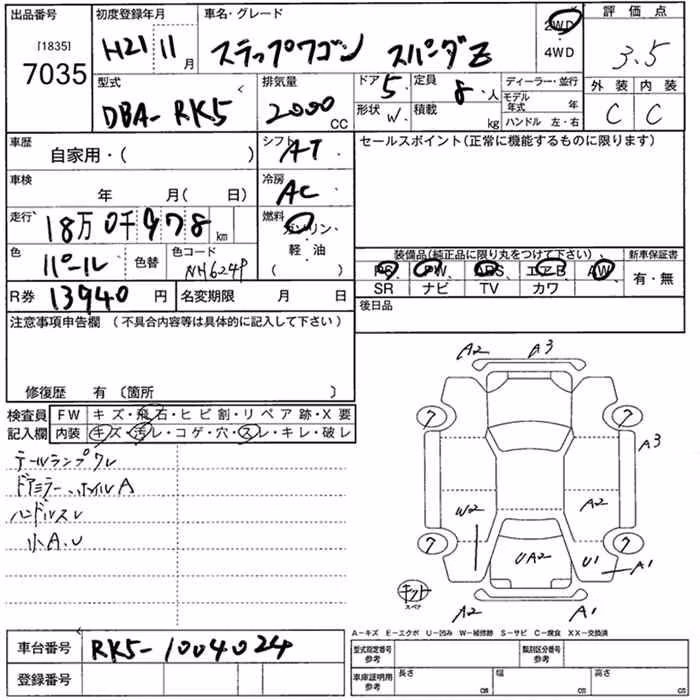 出品番号 初度登録年月 車名・グレード 2WD 評価点
[1835] H21 11月 ステップワゴン スパーダZ 4WD 3.5
7035
型式 排気量 ドア 5 定員 8人 ディーラー・並行 外装 内装
DBA-RK5 2000cc 形状 W 積載 kg モデル年式 年 C C
ハンドル 左・右
車歴 自家用・( ) シフト AT セールスポイント(正常に機能するものに限ります)
車検 年 月( 日) 冷房 AC
走行 18万0千978km 燃料 ガソリン・
軽・油
( )
色 パール 色替 色コード NH624P
装備品(純正品に限り丸をつけて下さい) 新車保証書
PS PW ABS エアB AW 有・無
SR ナビ TV カワ
R券 13940円 名変期限 月 日 後日品
注意事項申告欄(不具合内容等は具体的に記入して下さい)
修復歴 有〔箇所 〕
検査員 FW キズ・飛石・ヒビ割・リペア跡・X要
記入欄 内装 キズ・汚レ・コゲ・穴・スレ・キレ・破レ
テールランプワレ
ドアミラー、ホイルA
ハンドルスレ
小A.U
A2 A3
7 7
A3
W2 A2
7 7
UA2 U1 A1
キット
スペア
A2 A1
A-キズ E-エクボ U-凹み W-補修跡 S-サビ C-腐食 XX-交換済
車台番号 RK5-1004024
登録番号
型式指定番号 参考 類別区分番号 参考
車庫証明用 参考 長さ cm 幅 cm 高さ cm